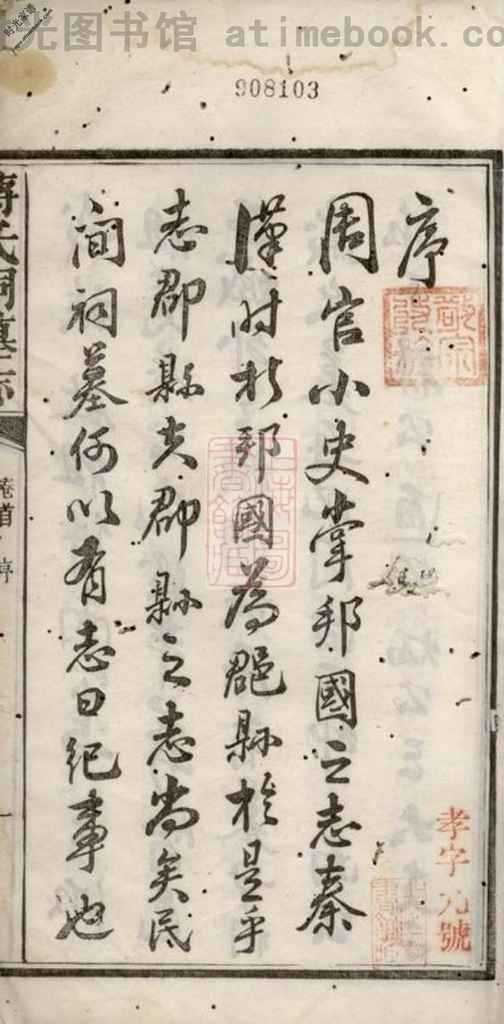 光图书馆 atimebook.com
时光家谱
908103
序
周官小史掌邦國之志秦
漢时於邦國為郡縣於是乎
志郡縣夫郡縣之志尚矣民
间祠墓何以有志曰纪事也
孝字九號
傅氏祠墓志
卷首
序